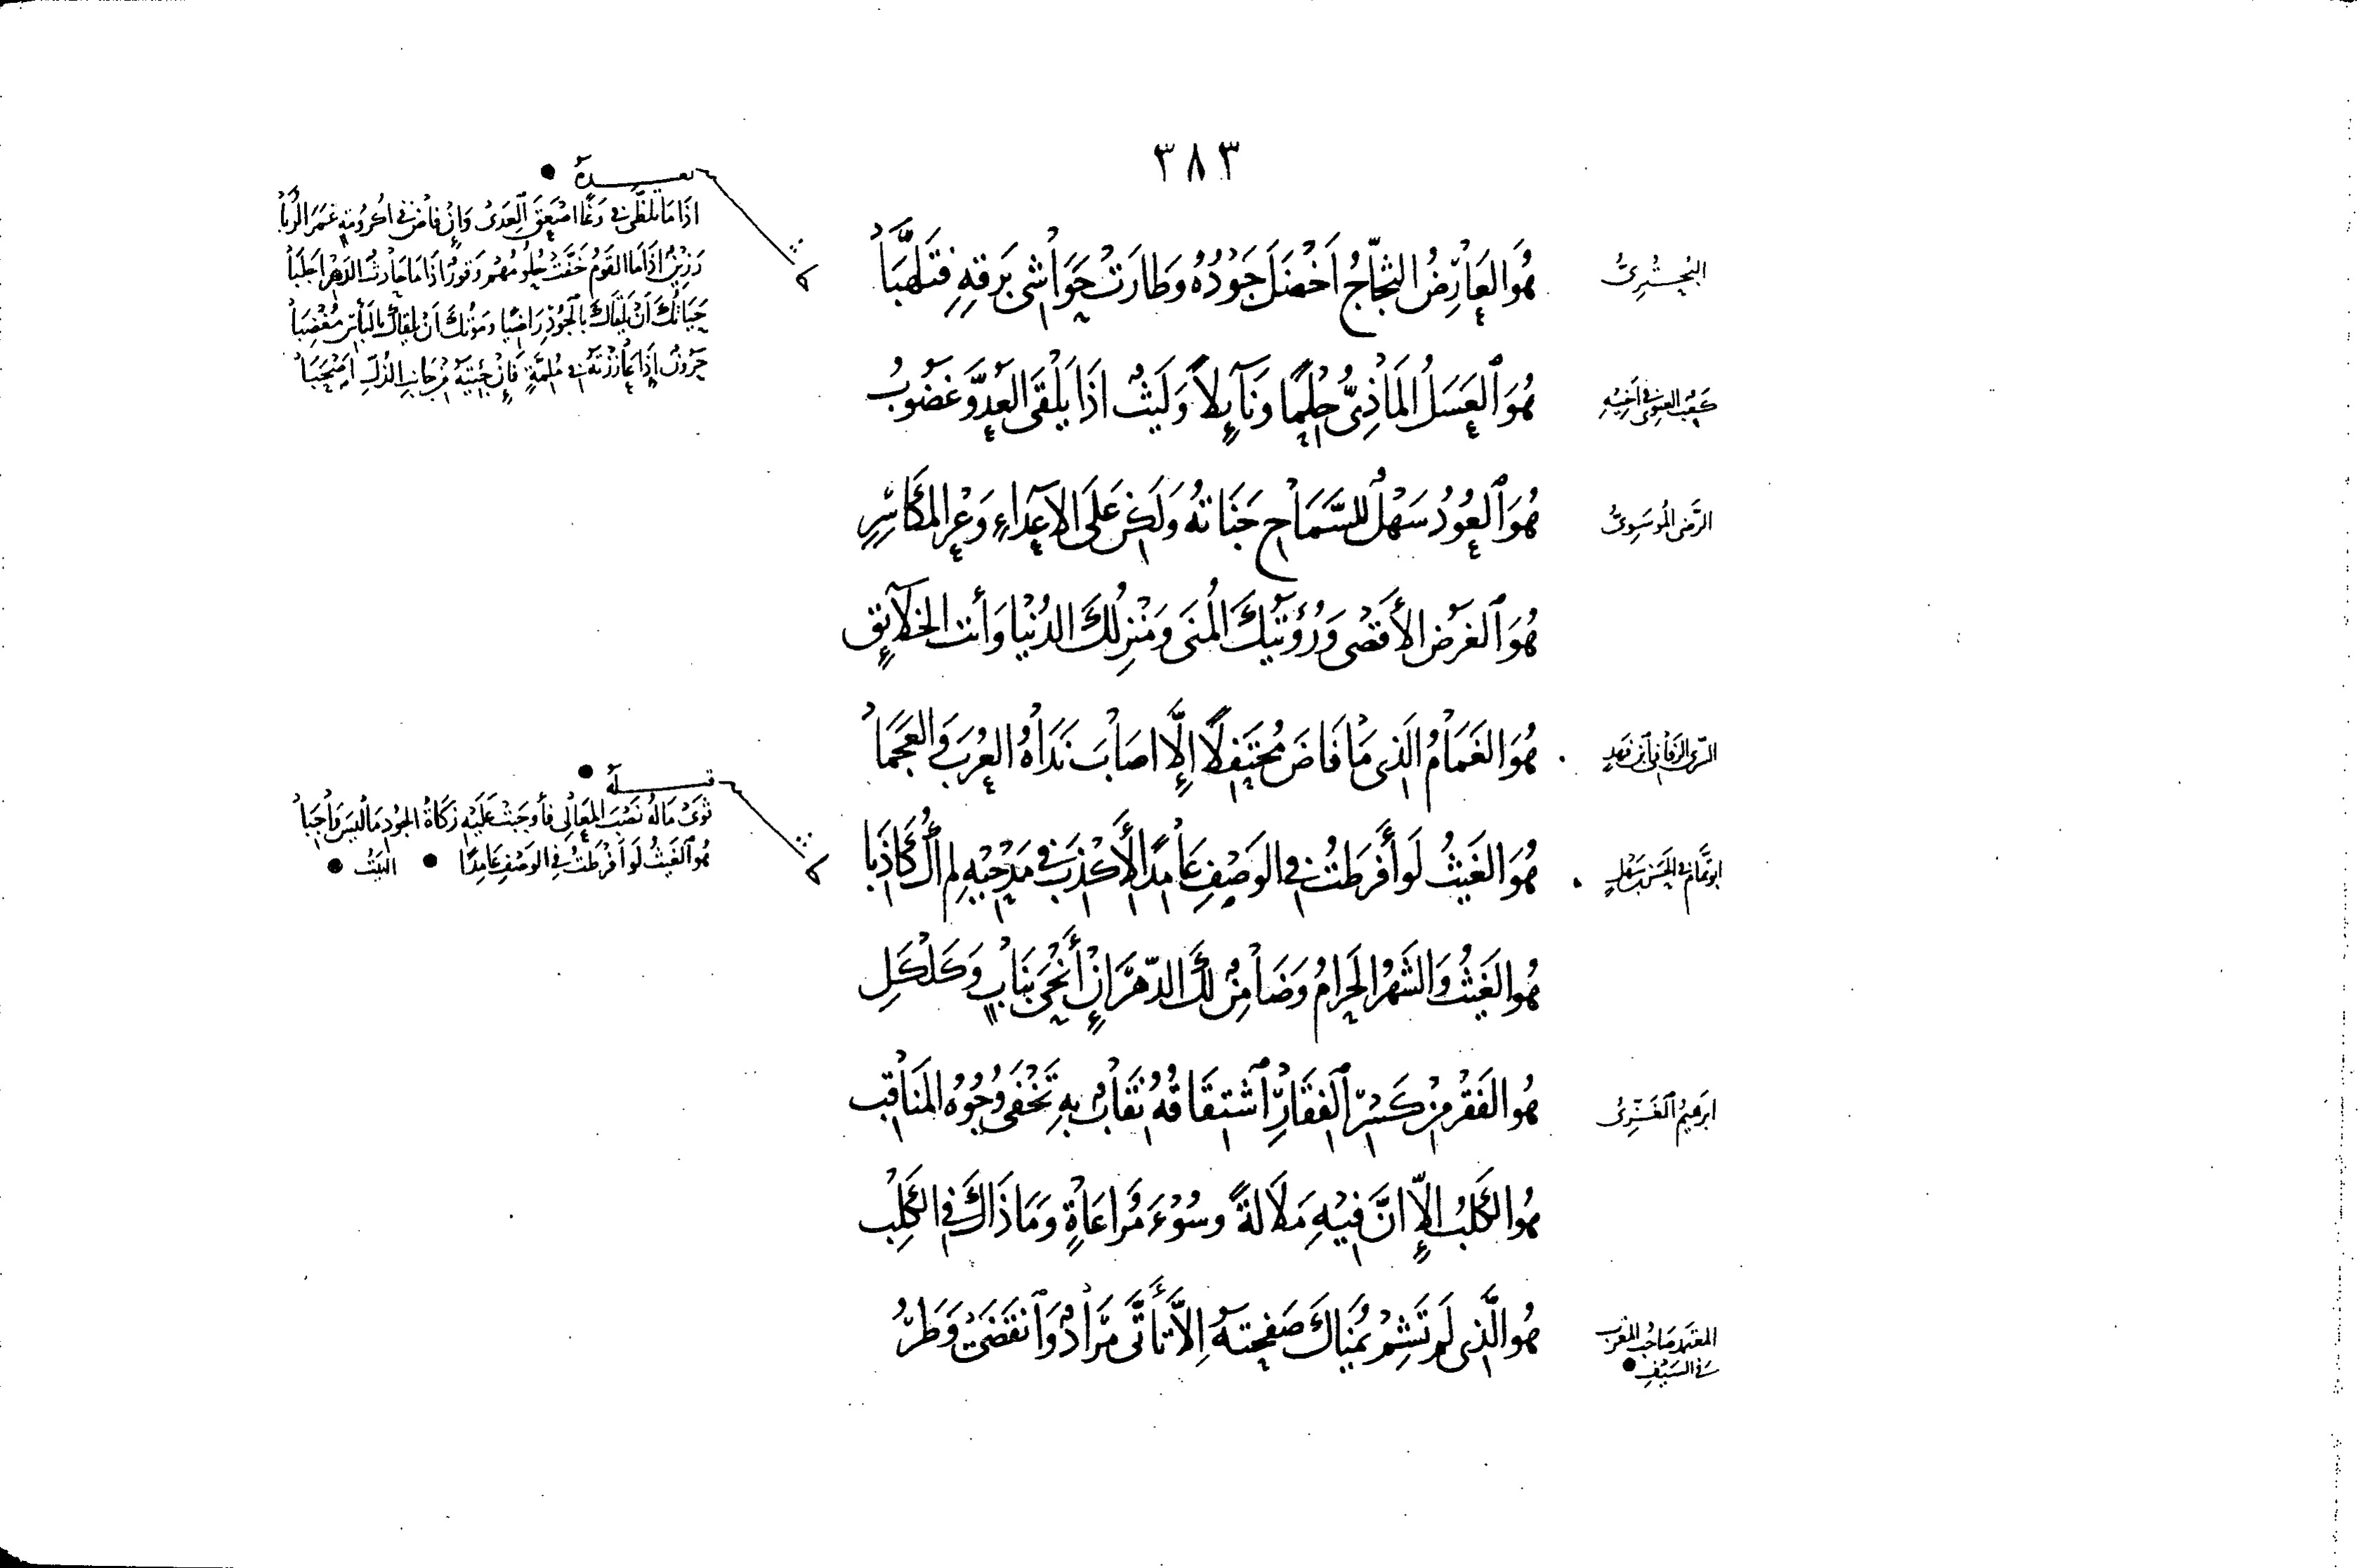 ٣٨٣
البُحتُرِىُّ
هُوَ العَارِضُ الثجَّاجُ اَخْضَلَ جَوْدُهُ وَطَارَتْ حَوَاشِى بَرقِهِ فَتَلَهَّبَا
بَعدَهُ
اذَا مَا تَلَظَّى فى وَغًا اَصْعَقَ العِدَى وَاِنْ فَاضَ فى اُكْرُومَةٍ غَمَرَ الرُّبَا
رَزِينٌ اِذَا مَا القَوْمُ خَفَّتْ حُلُومُهُمْ وَقورٌ اذَا مَا حَادِثُ الدَهْرِ اَجْلَبَا
حَيَاتُكَ اَنْ يَلْقَاكَ بِالجُودِ رَاضِيًا وَمَوْتُكَ اَنْ يَلْقَاكَ بِالبَأسِ مُغْضَبَا
حَرُونٌ اِذَا عَازَزْتَهُ فى مُلِمَّةٍ فَاِنْ جِئتَهُ مِنْ جَانِبِ الذُلِّ اَصْحَبَا
كَعْبُ الغَنَوِى فى اَخِيْهِ
هُوَ العَسَلُ المَاذِىُّ حِلْمًا وَنَآئِلاً وَلَيثٌ اذَا يَلْقَى العَدُوَّ غَضُوبُ
الرَّضى المُوسَوِىُّ
هُوَ العُودُ سَهْلٌ للسَّمَاحِ جَنَاتُهُ وَلَكِنْ عَلَى الاَعدَاءِ وَعْرُ المَكَاسِرِ
هُوَ الغَرَضُ الأَقصَى وَرُؤيَتُكَ المُنَى وَمَنْزِلُكَ الدُنْيَا وَأنتَ الخَلآئِقِ
السَّرى الرَفَّا فى ابن فَهدٍ
هُوَ الغَمَامُ الَذِى مَا فَاضَ مُحتَفِلًا اِلَّا اصَابَ نَدَاهُ العُرْبَ وَالعَجَمَا
ابو تَمَّام فى الحَسَن بن سَهْلٍ
هُوَ الغَيثُ لَو أَفرَطتُ فى الوَصْفِ عَامِدًا لأَكْذِبَ فى مَدْحِيْهِ لم أكُ كَاذِبَا
قَبلَهُ
ثَوَى مَالُهُ نَصْبَ المَعَالِى فَأوجَبَتْ عَلَيْهِ زَكَاةُ الجُودِ مَا لَيسَ وَاجِبَا
هُوَ الغَيثُ لَو أَفرَطتُ فِى الوَصْفِ عَامِدًا البَيتُ
هُوَ الغَيثُ وَالشَهْرُ الحَرَامُ وَضَامِنٌ لَكَ الدَّهْرَ اِنْ أَنْحَى بِنَابٍ وَكَلْكَلِ
ابرَهيمُ الغَزِّىُ
هُوَ الفَقْرُ مِنْ كَسْرِ الفَقَارِ اشتِقَاقُهُ نِقَابٌ بِهِ تَخْفَى وُجُوهُ المَنَاقِبِ
هُوَ الكَلبُ اِلّا انَّ فِيْهِ مَلَالَةً وَسُوْءَ مُراعَاةٍ وَمَا ذَاكَ فى الكَلْبِ
المعتَمِد صَاحِبُ المَغرِبِ فى السَيْفِ
هُوَ الَّذِى لَم تَشِمْ يُمْنَاكَ صَفحَتَهُ اِلاَّ تَأَتَّى مُرَادٌ وَانقَضَى وَطَرُ